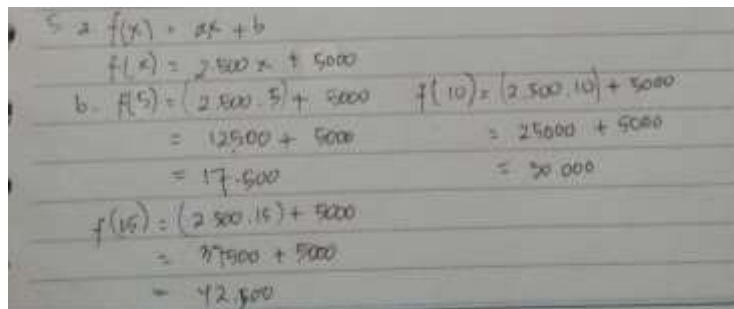 5 a. f(x) = ax + b
f(x) = 2.500 x + 5000
b. f(5) = (2.500 . 5) + 5000 f(10) = (2.500 . 10) + 5000
= 12500 + 5000 = 25000 + 5000
= 17.500 = 30.000
f(15) = (2.500 . 15) + 5000
= 37500 + 5000
= 42.500